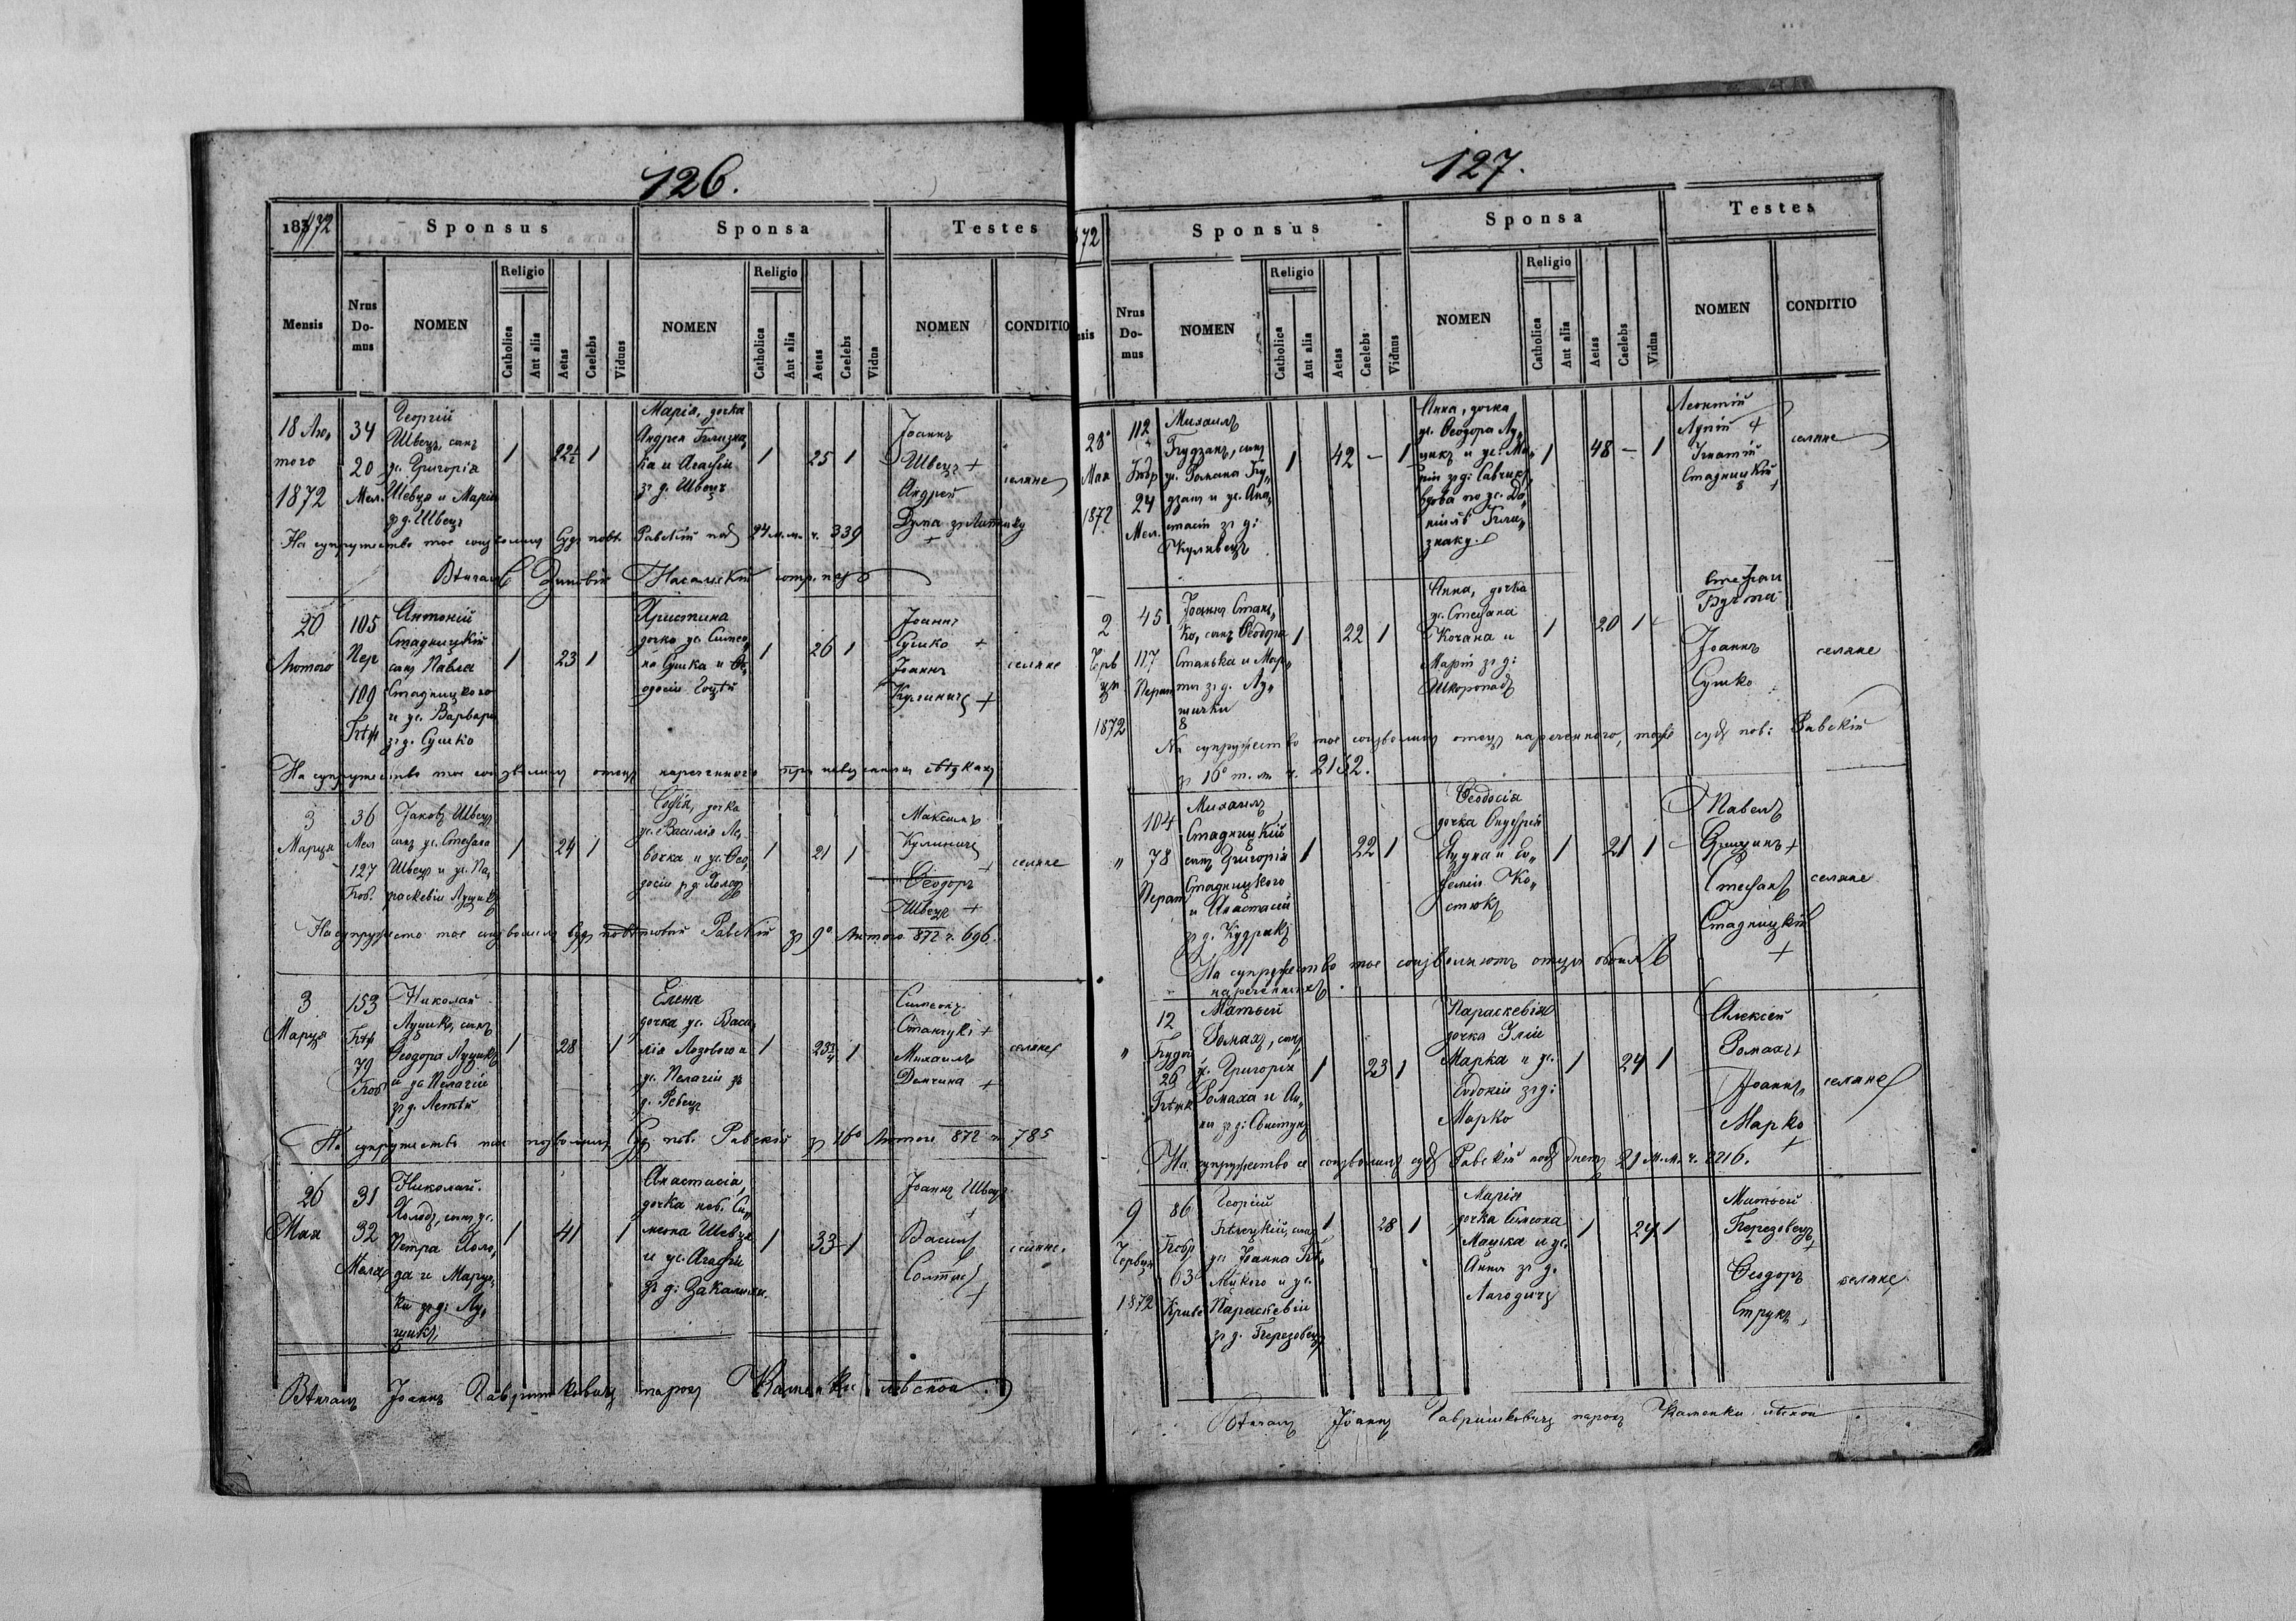 126.
1872
Sponsus
Sponsa
Testes
Mensis
Nrus Do- mus
NOMEN
Religio
Catholica
Aut alia
Aetas
Caelebs
Viduus
NOMEN
Religio
Catholica
Aut alia
Aetas
Caelebs
Vidua
NOMEN
CONDITIO
18 Лю,
того
1872
34
20
Мел.
Георгій
Швець, сынъ
ус. Григорія
Швеця и Маріи
зъ д. Швець
1
22½
1
Марія, дочка
Андрея Близна,
ка и Агафіи
зъ д. Швець
1
25
1
Іоаннъ
Швець +
Андрей
Дума
+
селяне
На супружество тое соизволилъ Судъ повт. Равскій подъ 24 м.м. ч. 339
Вѣнчалъ Зиновій Насальскій сотр. пар
20
Лютого
105
Пер
109
Антоній
Стадницкій
сынъ Павла
Стадницкого
и ус. Варвары
зъ д. Сушко
1
23
1
Христина
дочка ус. Симео,
на Сушка и Ѳе,
одосіи
1
26
1
Іоаннъ
Сушко +
Іоаннъ
Кулиничъ +
селяне
На супружество тое соизволилъ отець нареченного при
3
Марця
36
Мел
127
Боб.
Яковъ Швець
сынъ ус. Стефана
Швеця и ус. Па,
раскевіи Луцикъ
1
24
1
Софія, дочка
ус. Василія Ле,
вочка и ус. Ѳео,
досіи зъ д. Холодъ
1
21
1
Максимъ
Кулиничъ
+
Ѳеодоръ
Швець +
селяне
На супружество тое соизволилъ Судъ повѣтовый Равскій зъ 9о Лютого 872 ч. 696.
3
Марця
153
79
Боб
Николай
Луцикъ, сынъ
Ѳеодора Луцикъ
и ус Пелагіи
зъ д.
1
28
1
Елена
дочка ус. Васи,
лія Лозового и
ус. Пелагіи зъ
д. Ребець
1
23¾
1
Симеонъ
Станчукъ +
Михаилъ
Демчина +
селяне
На супружество тое позволилъ Судъ пов. Равскій зъ 16о Лютого 872 ч. 785
26
Мая
31
32
Мелах
Николай
Холодъ, сынъ ус.
Петра Холо,
да и Марус,
ки зъ д: Лу,
цикъ
1
41
1
Анастасія,
дочка поб. Си,
меона Швеця
и ус. Агафіи
зъ д:
1
33
1
Іоаннъ Швець
+
Василь
Солтысъ
+
селяне.
Вѣнчалъ Іоаннъ Гавришкевичъ парохъ Каменки лѣсной
127.
72
Sponsus
Sponsa
Testes
sis
Nrus Do- mus
NOMEN
Religio
Catholica
Aut alia
Aetas
Caelebs
Viduus
NOMEN
Religio
Catholica
Aut alia
Aetas
Caelebs
Vidua
NOMEN
CONDITIO
28
Мая
1872
112
Бобр
24
Мел.
Михаилъ
Гудзанъ, сынъ
ус. Романа Гу,
дзана и ус. Ана,
стасіи зъ д:
Куливець
1
42
—
1
Анна, дочка
ус. Ѳеодора Лу,
цикъ и ус. Ма,
ріи зъ д: Савчукъ,
вдова по ус. Да,
ніилѣ Близ,
знаку.
1
48
—
1
Леонтій
Лупій +
Игнатій
Стадницкій
+
селяне
2
Черв
ця
1872
45
117
Перат
Іоаннъ Стань,
ко, сынъ Ѳеодора
Станька и Мар,
ты зъ д. Лу,
1
22
1
Анна, дочка
ус. Стефана
Кочана и
Маріи зъ д:
Шкоропадъ
1
20
1
Стефан
Бучма
Іоаннъ
Сушко
селяне
На супружество тое соизволилъ отець нареченного, тоже судъ пов: Равскій
зъ 16о т. м. ч. 2132.
"
104
78
Перат
Михаилъ
Стадницкій
сынъ Григорія
Стадницкого
и Анастасіи
зъ д. Кудракъ
1
22
1
Ѳеодосія
дочка Онуфрія
Яцуна и Ев,
фиміи Ко,
стюкъ
1
21
1
Павелъ
Яцинъ +
Стефанъ
Стадницкій
+
селяне
На супружество тое соизволяютъ отцы обоихъ
нареченныхъ
"
12
26
Матѳей
Ромахъ, сынъ
ус. Григорія
Ромаха и Ан,
ны зъ д: Свистунъ
1
23
1
Параскевія
дочка Иліи
Марка и ус.
Евдокіи зъ д:
Марко
1
24
1
Алексей
Ромахъ +
Іоаннъ
Марко
+
селяне
На супружество се соизволилъ судъ Равскій подъ днемъ 21 М.м. ч. 2216.
9
Червця
1872
86
Бобр
63
Криве
Георгій
Бѣлецкій, сынъ
ус. Іоанна Бѣ,
лецкого и ус.
Параскевіи
зъ д. Березовець
1
28
1
Марія
дочка Симеона
Мацька и ус.
Анны зъ д.
Лагодичъ
1
24
1
Матѳей
Березовець
+
Ѳеодоръ
Струкъ
селяне
Вѣнчалъ Іоаннъ Гавришкевичъ парохъ Каменки лѣсной